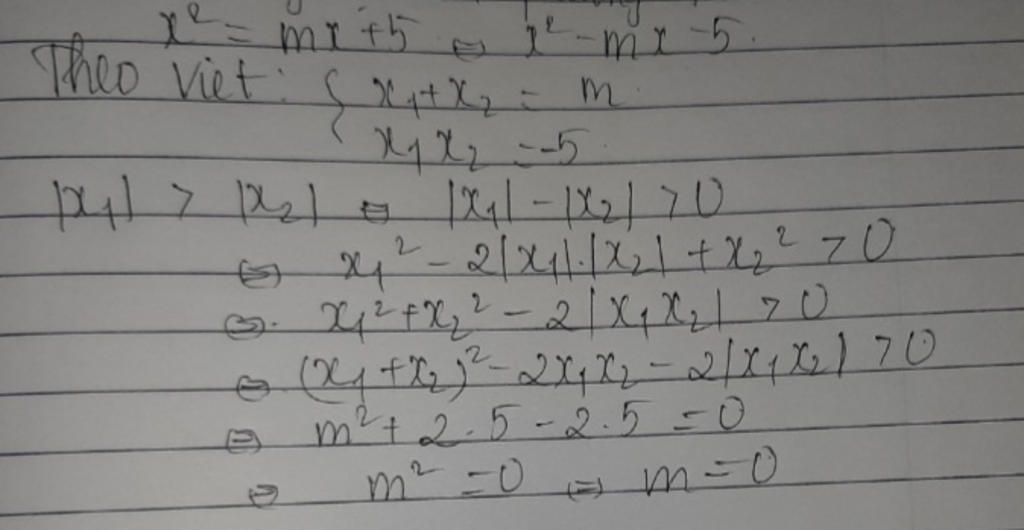 x² = mx + 5 ⇔ x² - mx - 5.
Theo Viet: { x₁ + x₂ = m.
x₁ x₂ = -5.
|x₁| > |x₂| ⇔ |x₁| - |x₂| > 0
⇔ x₁² - 2|x₁|.|x₂| + x₂² > 0
⇔. x₁² + x₂² - 2|x₁ x₂| > 0
⇔ (x₁ + x₂)² - 2x₁x₂ - 2|x₁x₂| > 0
⇔ m² + 2.5 - 2.5 = 0
⇔ m² = 0 ⇔ m = 0